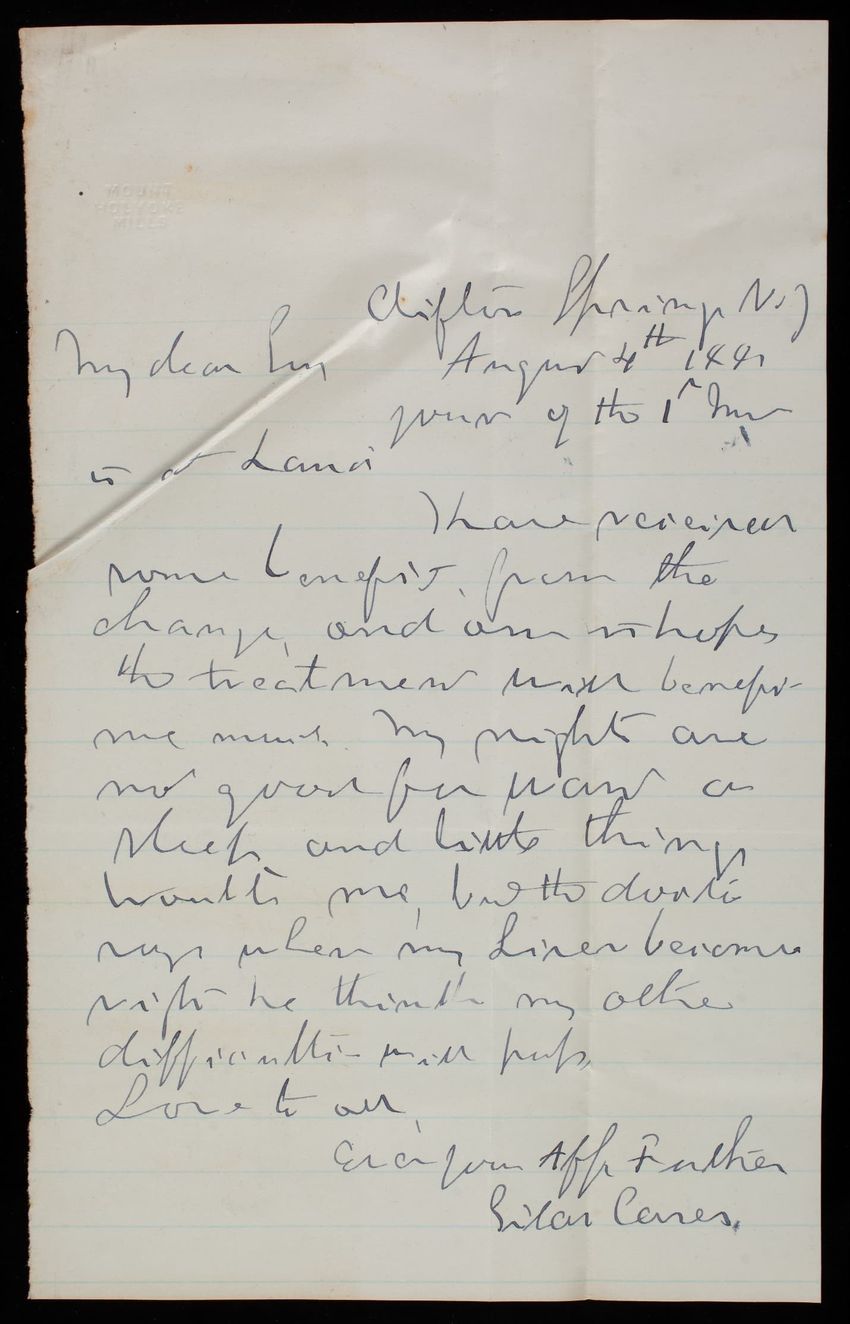 MOUNT
HOLYOKE
MILLS
Clifton Springs N.Y
My dear Son August 4th 1881
yours of the 1st Inst
is at hand
I have received
some benefit, from the
change, and am in hopes
the treatment will benefit
me much. My nights are
not good for want of
sleep and little things
trouble me, but the doctor
says when my Liver becomes
right he thinks my other
difficulties will pass,
Love to all,
Ever your Affe Father
Silas Casey.